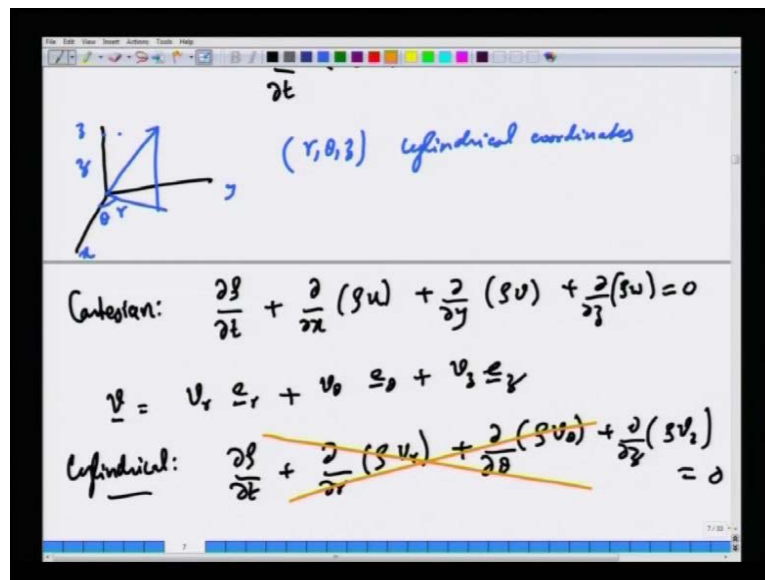 File Edit View Insert Actions Tools Help
∂t
(r, θ, z) cylindrical coordinates
z
z
y
θ r
x
Cartesian: ∂ρ/∂t + ∂/∂x (ρu) + ∂/∂y (ρv) + ∂/∂z (ρw) = 0
v = v_r e_r + v_θ e_θ + v_z e_z
Cylindrical: ∂ρ/∂t + ∂/∂r (ρ v_r) + ∂/∂θ (ρ v_θ) + ∂/∂z (ρ v_z)
= 0
7